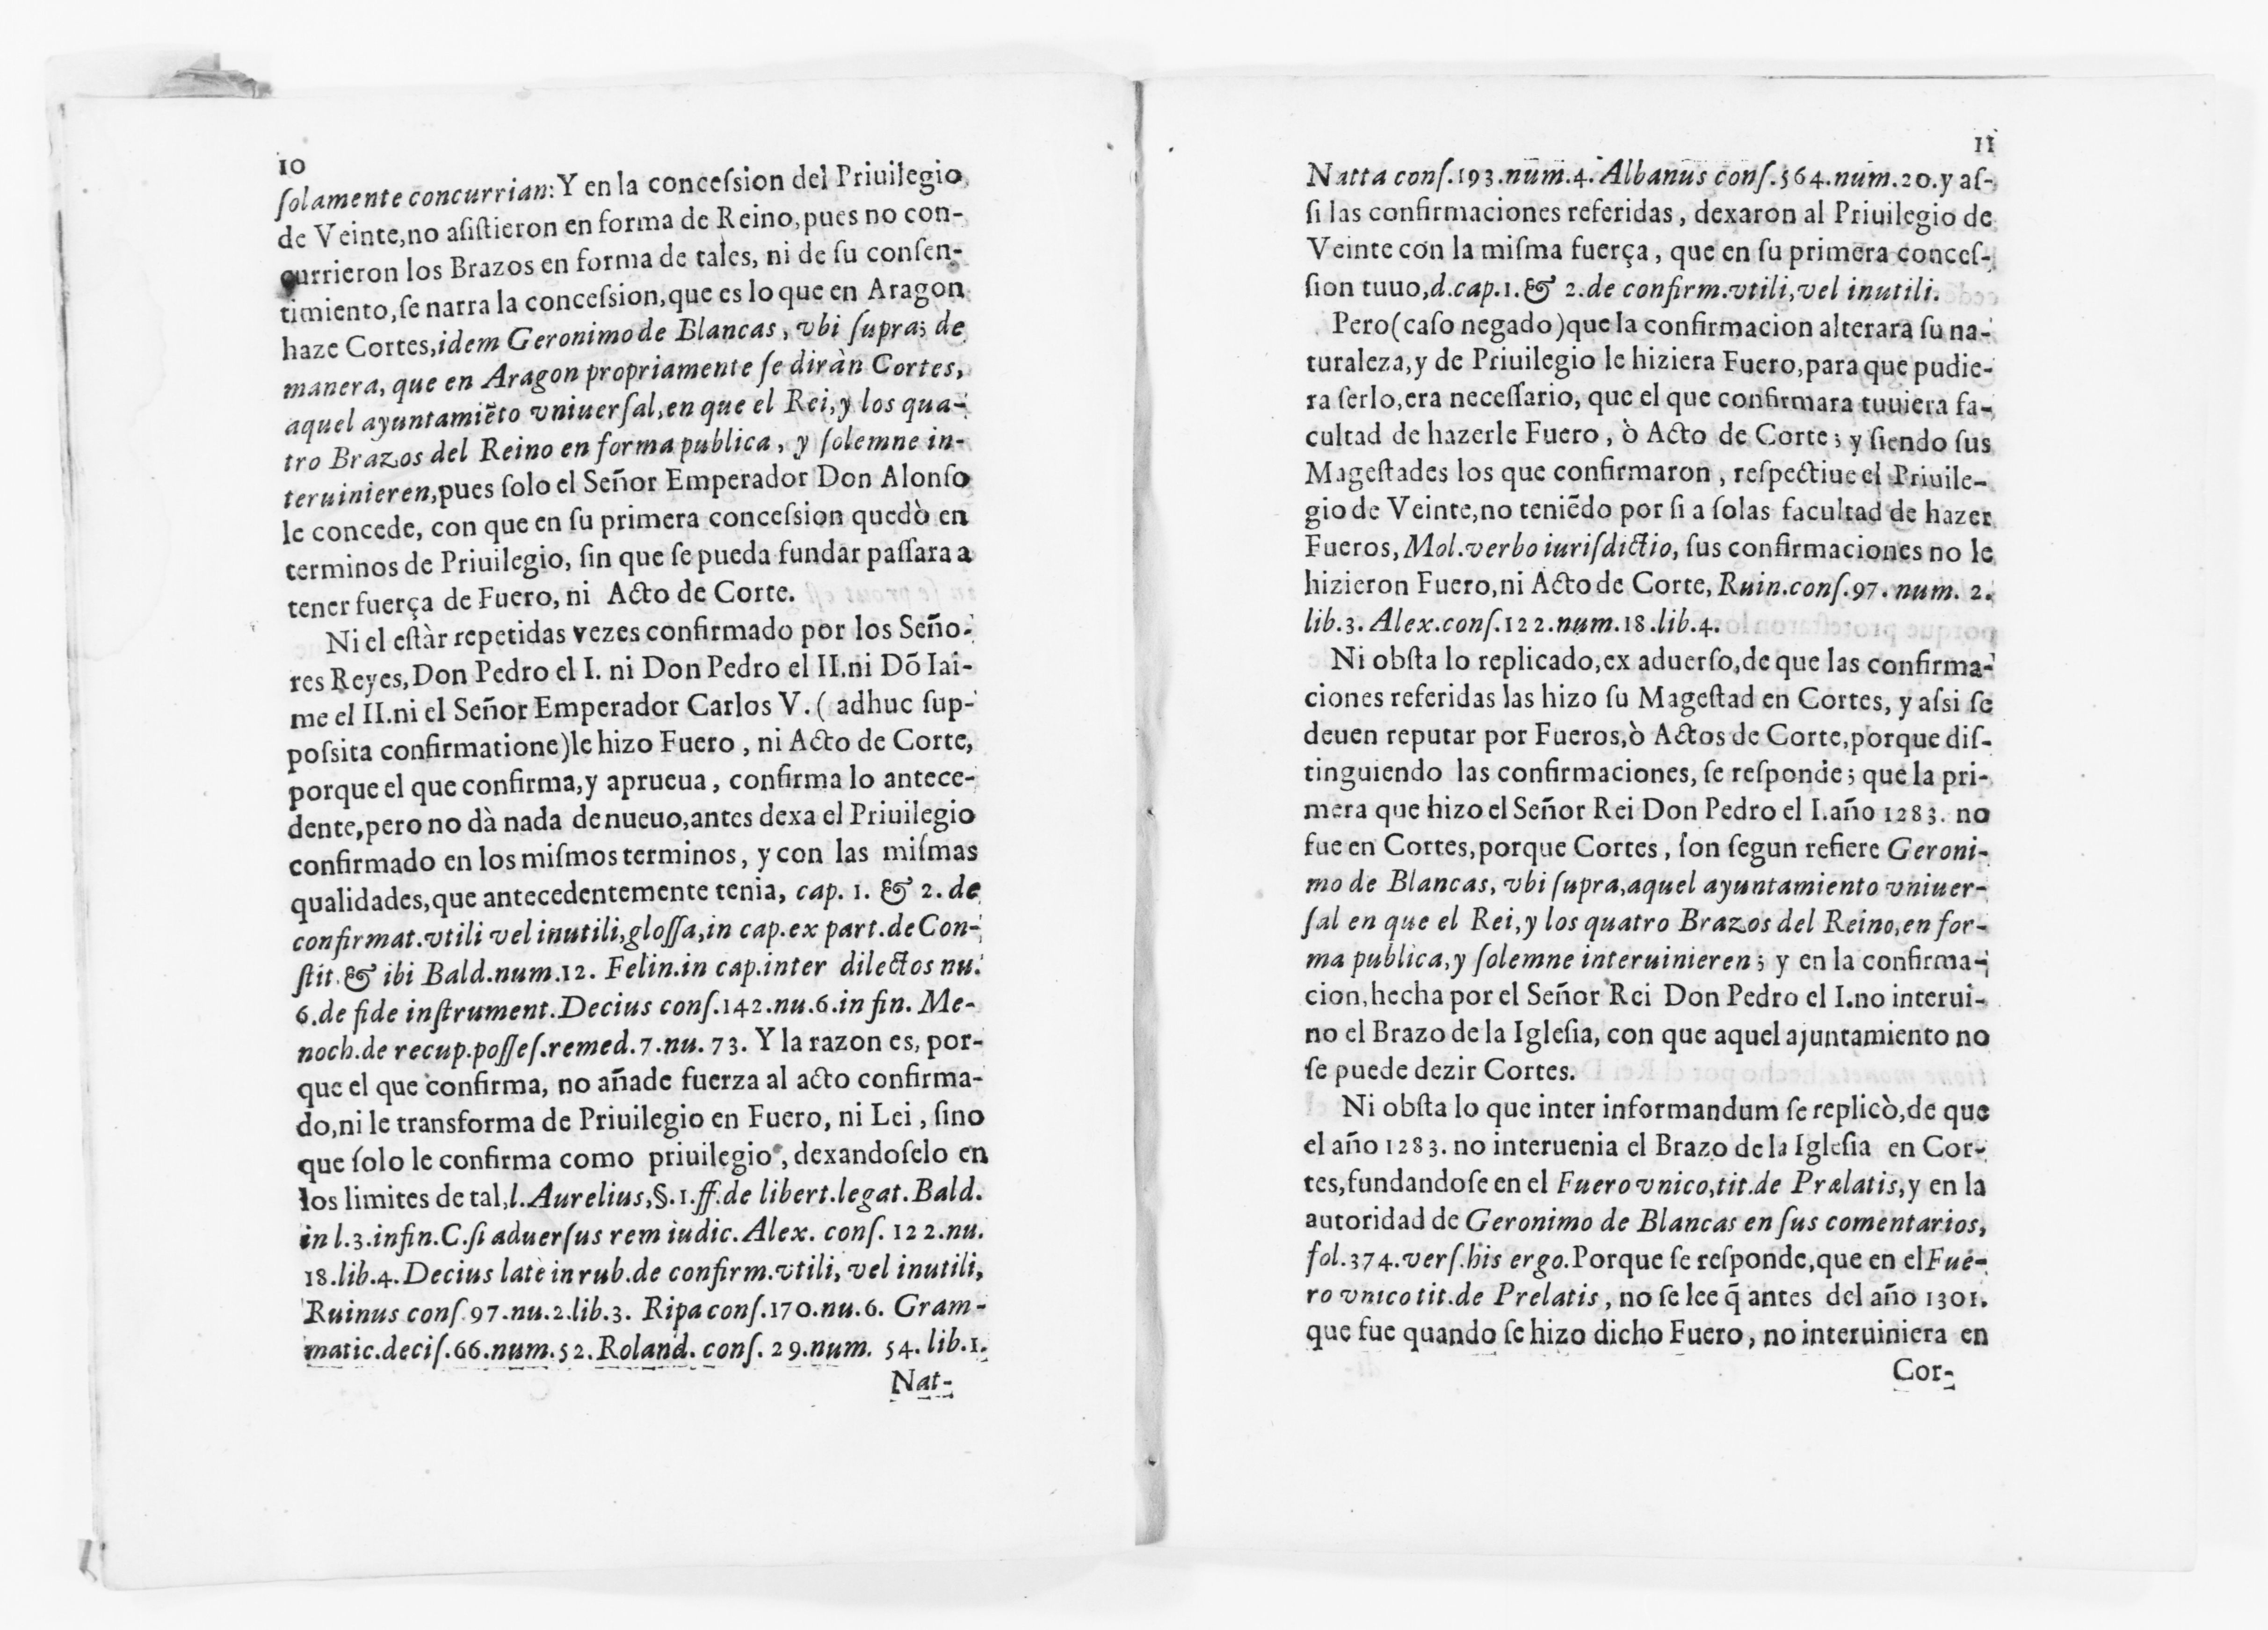 10
ſolamente concurrian: Y en la conceſsion del Priuilegio
de Veinte, no aſiſtieron en forma de Reino, pues no con-
currieron los Brazos en forma de tales, ni de ſu conſen-
timiento, ſe narra la conceſsion, que es lo que en Aragon
haze Cortes, idem Geronimo de Blancas, vbi ſupra; de
manera, que en Aragon propriamente ſe diràn Cortes,
aquel ayuntamiẽto vniuerſal, en que el Rei, y los qua-
tro Brazos del Reino en forma publica, y ſolemne in-
teruinieren, pues ſolo el Señor Emperador Don Alonſo
le concede, con que en ſu primera conceſsion quedò en
terminos de Priuilegio, ſin que ſe pueda fundar paſſara a
tener fuerça de Fuero, ni Acto de Corte.
Ni el eſtàr repetidas vezes confirmado por los Seño-
res Reyes, Don Pedro el I. ni Don Pedro el II. ni Dõ Iai-
me el II. ni el Señor Emperador Carlos V. ( adhuc ſup-
poſsita confirmatione) le hizo Fuero, ni Acto de Corte,
porque el que confirma, y aprueua, confirma lo antece-
dente, pero no dà nada de nueuo, antes dexa el Priuilegio
confirmado en los miſmos terminos, y con las miſmas
qualidades, que antecedentemente tenia, cap. 1. & 2. de
confirmat. vtili vel inutili, gloſſa, in cap. ex part. de Con-
ſtit. & ibi Bald. num. 12. Felin. in cap. inter dilectos nu.
6. de fide inſtrument. Decius conſ. 142. nu. 6. in fin. Me-
noch. de recup. poſſeſ. remed. 7. nu. 73. Y la razon es, por-
que el que confirma, no añade fuerza al acto confirma-
do, ni le transforma de Priuilegio en Fuero, ni Lei, ſino
que ſolo le confirma como priuilegio, dexandoſelo en
los limites de tal, l. Aurelius, §. 1. ff. de libert. legat. Bald.
in l. 3. in fin. C. ſi aduerſus rem iudic. Alex. conſ. 122. nu.
18. lib. 4. Decius latè in rub. de confirm. vtili, vel inutili,
Ruinus conſ. 97. nu. 2. lib. 3. Ripa conſ. 170. nu. 6. Gram-
matic. deciſ. 66. num. 52. Roland. conſ. 29. num. 54. lib. 1.
Nat-
11
Natta conſ. 193. num. 4. Albanus conſ. 564. num. 20. y aſ-
ſi las confirmaciones referidas, dexaron al Priuilegio de
Veinte con la miſma fuerça, que en ſu primera conceſ-
ſion tuuo, d. cap. 1. & 2. de confirm. vtili, vel inutili.
Pero (caſo negado) que la confirmacion alterara ſu na-
turaleza, y de Priuilegio le hiziera Fuero, para que pudie-
ra ſerlo, era neceſſario, que el que confirmara tuuiera fa-
cultad de hazerle Fuero, ò Acto de Corte; y ſiendo ſus
Mageſtades los que confirmaron, reſpectiue el Priuile-
gio de Veinte, no teniẽdo por ſi a ſolas facultad de hazer
Fueros, Mol. verbo iuriſdictio, ſus confirmaciones no le
hizieron Fuero, ni Acto de Corte, Ruin. conſ. 97. num. 2.
lib. 3. Alex. conſ. 122. num. 18. lib. 4.
Ni obſta lo replicado, ex aduerſo, de que las confirma-
ciones referidas las hizo ſu Mageſtad en Cortes, y aſsi ſe
deuen reputar por Fueros, ò Actos de Corte, porque diſ-
tinguiendo las confirmaciones, ſe reſponde; que la pri-
mera que hizo el Señor Rei Don Pedro el I. año 1283. no
fue en Cortes, porque Cortes, ſon ſegun refiere Geroni-
mo de Blancas, vbi ſupra, aquel ayuntamiento vniuer-
ſal en que el Rei, y los quatro Brazos del Reino, en for-
ma publica, y ſolemne interuinieren; y en la confirma-
cion, hecha por el Señor Rei Don Pedro el I. no interui-
no el Brazo de la Igleſia, con que aquel ajuntamiento no
ſe puede dezir Cortes.
Ni obſta lo que inter informandum ſe replicò, de que
el año 1283. no interuenia el Brazo de la Igleſia en Cor-
tes, fundandoſe en el Fuero vnico, tit. de Prælatis, y en la
autoridad de Geronimo de Blancas en ſus comentarios,
fol. 374. verſ. his ergo. Porque ſe reſponde, que en el Fue-
ro vnico tit. de Prelatis, no ſe lee q̃ antes del año 1301.
que fue quando ſe hizo dicho Fuero, no interuiniera en
Cor-